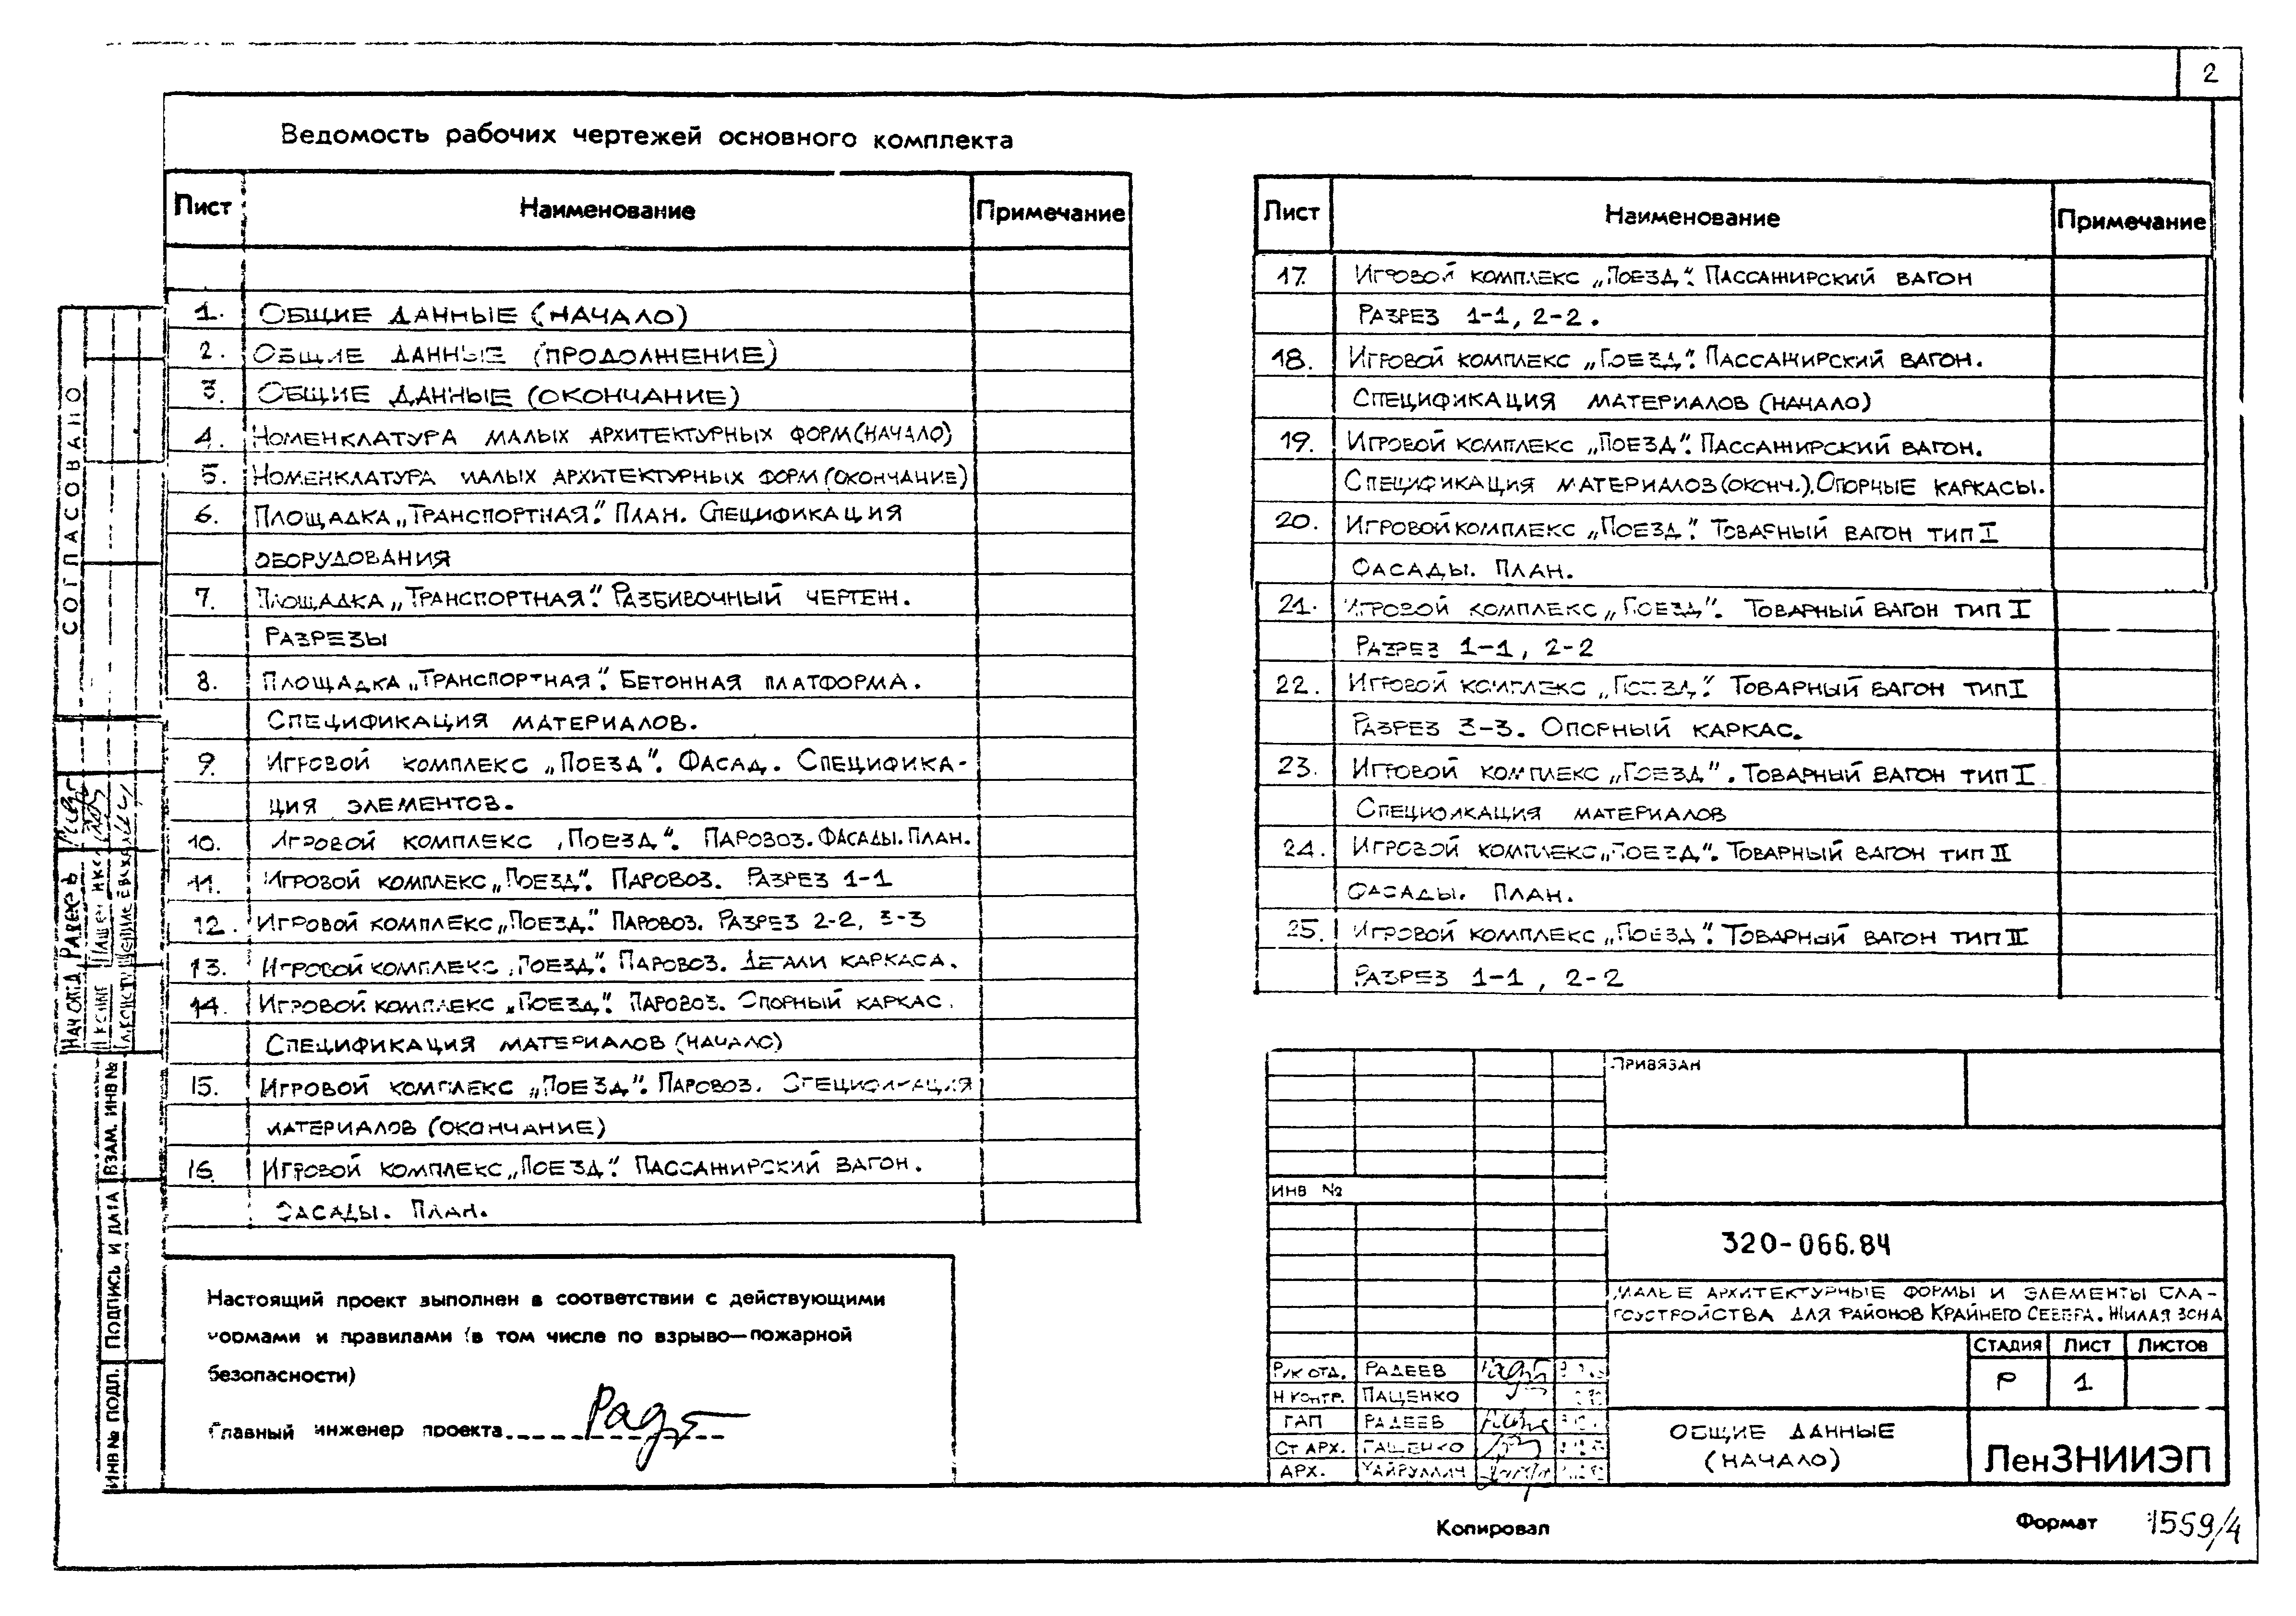 2
Ведомость рабочих чертежей основного комплекта
Лист Наименование Примечание
1. Общие данные (начало)
2. Общие данные (продолжение)
3. Общие данные (окончание)
4. Номенклатура малых архитектурных форм (начало)
5. Номенклатура малых архитектурных форм (окончание)
6. Площадка „Транспортная". План. Спецификация
оборудования
7. Площадка „Транспортная". Разбивочный чертеж.
Разрезы
8. Площадка „Транспортная". Бетонная платформа.
Спецификация материалов.
9. Игровой комплекс „Поезд". Фасад. Специфика-
ция элементов.
10. Игровой комплекс „Поезд". Паровоз. Фасады. План.
11. Игровой комплекс „Поезд". Паровоз. Разрез 1-1
12. Игровой комплекс „Поезд". Паровоз. Разрез 2-2, 3-3
13. Игровой комплекс „Поезд". Паровоз. Детали каркаса.
14. Игровой комплекс „Поезд". Паровоз. Опорный каркас.
Спецификация материалов (начало)
15. Игровой комплекс „Поезд". Паровоз. Спецификация
материалов (окончание)
16. Игровой комплекс „Поезд". Пассажирский вагон.
Фасады. План.
Лист Наименование Примечание
17. Игровой комплекс „Поезд". Пассажирский вагон
Разрез 1-1, 2-2.
18. Игровой комплекс „Поезд". Пассажирский вагон.
Спецификация материалов (начало)
19. Игровой комплекс „Поезд". Пассажирский вагон.
Спецификация материалов (оконч.). Опорные каркасы.
20. Игровой комплекс „Поезд". Товарный вагон тип I
Фасады. План.
21. Игровой комплекс „Поезд". Товарный вагон тип I
Разрез 1-1, 2-2
22. Игровой комплекс „Поезд". Товарный вагон тип I
Разрез 3-3. Опорный каркас.
23. Игровой комплекс „Поезд". Товарный вагон тип I
Специфкация материалов
24. Игровой комплекс „Поезд". Товарный вагон тип II
Фасады. План.
25. Игровой комплекс „Поезд". Товарный вагон тип II
Разрез 1-1, 2-2
Настоящий проект выполнен в соответствии с действующими
нормами и правилами (в том числе по взрыво—пожарной
безопасности)
Главный инженер проекта
Привязан
Инв №
320-066.84
Малые архитектурные формы и элементы бла-
гоустройства для районов Крайнего Севера. Жилая зона
Стадия Лист Листов
Р 1
Рук отд. Радеев
Н контр. Пащенко
ГАП Радеев
Ст арх. Пащенко
Арх.
Общие данные
(начало)
ЛенЗНИИЭП
Копировал
Формат 1559/4
СОГЛАСОВАНО
Нач отд Радеев
Взам. инв №
Подпись и дата
Инв № подл.